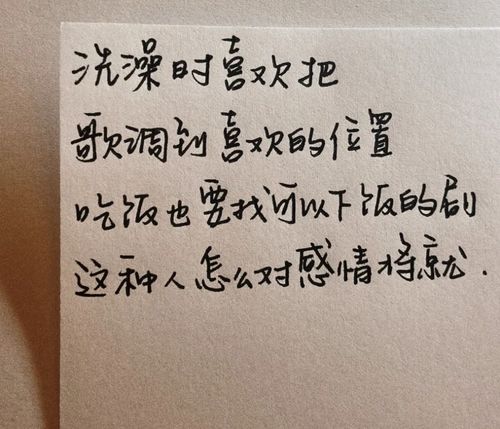 洗澡时喜欢把
歌调到喜欢的位置
吃饭也要找可以下饭的剧
这种人怎么对感情将就.